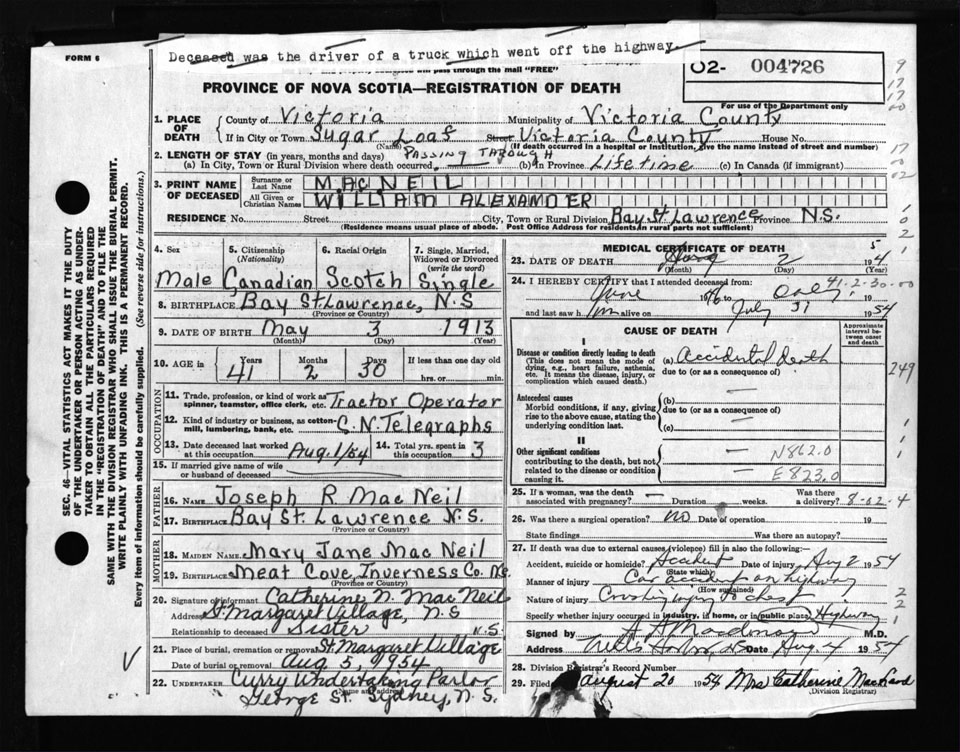 Deceased was the driver of a truck which went off the highway.
FORM 6
pass through the mail "FREE"
O2- 004726
For use of the Department only
PROVINCE OF NOVA SCOTIA—REGISTRATION OF DEATH
1. PLACE OF DEATH
County of Victoria Municipality of Victoria County
If in City or Town Sugar Loaf Street Victoria County House No.
(Name) (If death occurred in a hospital or institution, give the name instead of street and number)
2. LENGTH OF STAY (in years, months and days) PASSING THROUGH
(a) In City, Town or Rural Division where death occurred (b) in Province Lifetime (c) In Canada (if immigrant)
3. PRINT NAME OF DECEASED
Surname or Last Name MACNEIL
All Given or Christian Names WILLIAM ALEXANDER
RESIDENCE No. Street City, Town or Rural Division Bay St. Lawrence Province N.S.
(Residence means usual place of abode. Post Office Address for residents in rural parts not sufficient)
SEC. 46—VITAL STATISTICS ACT MAKES IT THE DUTY
OF THE UNDERTAKER OR PERSON ACTING AS UNDER-
TAKER TO OBTAIN ALL THE PARTICULARS REQUIRED
IN THE "REGISTRATION OF DEATH" AND TO FILE THE
SAME WITH THE DIVISION REGISTRAR WHO SHALL ISSUE THE BURIAL PERMIT.
WRITE PLAINLY WITH UNFADING INK. THIS IS A PERMANENT RECORD.
Every item of information should be carefully supplied. (See reverse side for instructions.)
4. Sex Male
5. Citizenship (Nationality) Canadian
6. Racial Origin Scotch
7. Single, Married, Widowed or Divorced (write the word) Single
8. BIRTHPLACE Bay St. Lawrence, N.S
(Province or Country)
9. DATE OF BIRTH May 3 1913
(Month) (Day) (Year)
10. AGE in Years 41 Months 2 Days 30 If less than one day old hrs. or min.
OCCUPATION
11. Trade, profession, or kind of work as spinner, teamster, office clerk, etc. Tractor Operator
12. Kind of industry or business, as cotton-mill, lumbering, bank, etc. C.N. Telegraphs
13. Date deceased last worked at this occupation Aug. 1/54
14. Total yrs. spent in this occupation 3
15. If married give name of wife or husband of deceased
FATHER
16. NAME Joseph R Mac Neil
17. BIRTHPLACE Bay St. Lawrence N.S.
(Province or Country)
MOTHER
18. MAIDEN NAME Mary Jane Mac Neil
19. BIRTHPLACE Meat Cove, Inverness Co. N.S.
(Province or Country)
20. Signature of informant Catherine N. Mac Neil
Address St. Margaret Village, N.S
Relationship to deceased Sister
21. Place of burial, cremation or removal St. Margaret Village N.S.
Date of burial or removal Aug 5, 1954
22. UNDERTAKER Curry Undertaking Parlor
Name and Address
George St. Sydney, N.S.
MEDICAL CERTIFICATE OF DEATH
23. DATE OF DEATH Aug 2 1954
(Month) (Day) (Year)
24. I HEREBY CERTIFY that I attended deceased from
June to
41-2-30-00
and last saw him alive on July 31 1954
CAUSE OF DEATH
Approximate interval between onset and death
I
Disease or condition directly leading to death
(This does not mean the mode of dying, e.g., heart failure, asthenia, etc. It means the disease, injury, or complication which caused death.)
(a) Accidental death
due to (or as a consequence of)
249
Antecedent causes
Morbid conditions, if any, giving rise to the above cause, stating the underlying condition last.
(b) —
due to (or as a consequence of)
(c) —
II
Other significant conditions
contributing to the death, but not related to the disease or condition causing it.
— N862.0
— E823.0
25. If a woman, was the death associated with pregnancy? — Duration weeks. Was there a delivery? 8-02-4
26. Was there a surgical operation? no Date of operation 19
State findings Was there an autopsy?
27. If death was due to external causes (violence) fill in also the following:
Accident, suicide or homicide? Accident Date of injury Aug 2 1954
(State which)
Manner of injury Car accident on highway
(How sustained)
Nature of injury Crushing injury to chest
Specify whether injury occurred in industry, in home, or in public place Highway
Signed by M.D.
Address Date Aug. 4 1954
28. Division Registrar's Record Number
29. Filed August 20 1954 Mrs Catherine
(Division Registrar)